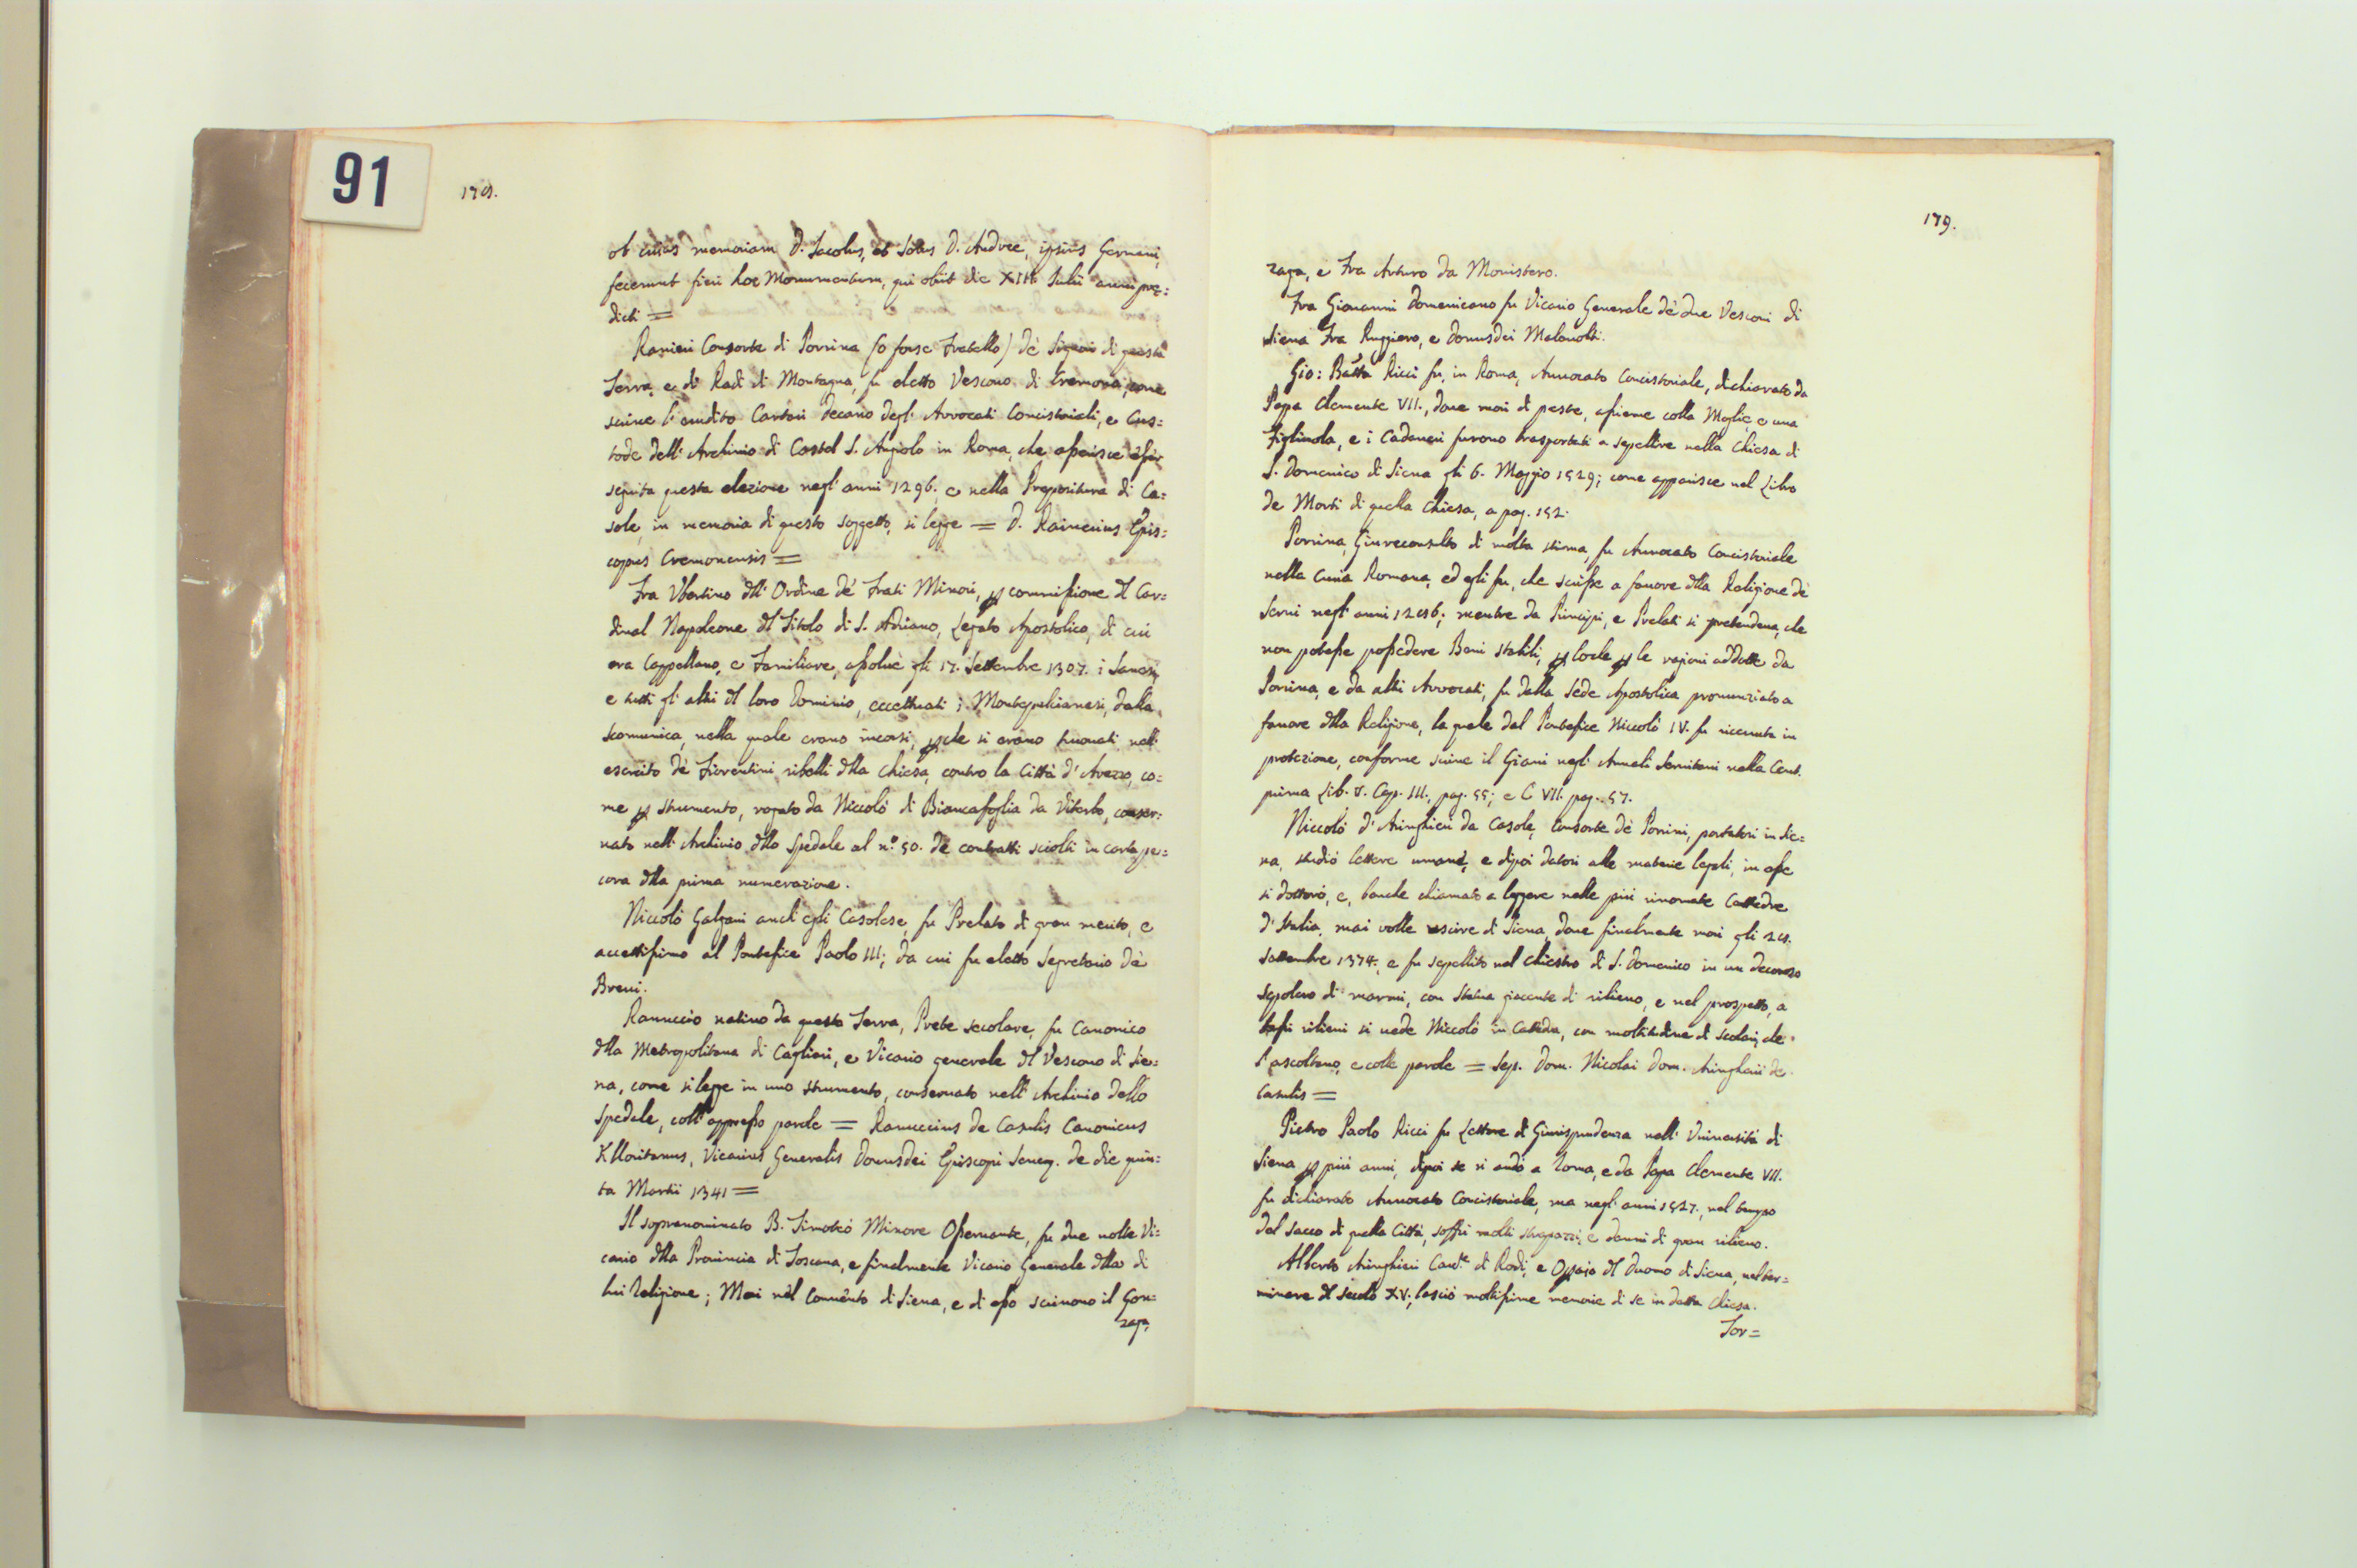 91
178.
ob cuius memoriam D. Jacobus, et Sotus D. Andree, ipsius Germani,
fecerunt fieri hoc Monumentum, qui obiit die XIII Julii anni pre=
dicti =
Ranieri Consorte di Porrina (o forse Fratello) de' Signori di questa
Terra, e di Radi di Montagna, fu eletto Vescovo di Cremona, come
scrive l'erudito Cartari Decano degl'Avvocati Concistoriali, e Cus=
tode dell'Archivio di Castel S. Angiolo in Roma, che asserisce esser
seguita questa elezione negl'anni 1296. e nella Propositura di Ca=
sole, in memoria di questo soggetto, si legge = D. Rainerius Epis=
copus Cremonensis =
Fra Vbertino dll'Ordine de' Frati Minori, p commissione dl Car=
dinal Napoleone dl Titolo di S. Adriano, Legato Apostolico, di cui
era Cappellano, e Familiare, assolvè gli 17. Settembre 1307. i Sanesi,
e tutti gl'altri dl loro Dominio, eccettuati i Montepulcianesi, dalla
scomunica, nella quale erano incorsi, pche si erano trovati nell'
esercito de' Fiorentini ribelli dlla Chiesa, contro la Città d'Arezzo, co=
me p strumento, rogato da Niccolò di Biancafoglia da Viterbo, conser=
vato nell'Archivio dllo Spedale al n.º 50. de contratti sciolti in cartape=
cora dlla prima numerazione.
Niccolò Galgani anch'egli Casolese, fu Prelato di gran merito, e
accettissimo al Pontefice Paolo III; da cui fu eletto Segretario de'
Brevi.
Ranuccio nativo da questa Terra, Prete secolare, fu Canonico
dlla Metropolitana di Cagliari, e Vicario generale dl Vescovo di Sie=
na, come si legge in uno strumento, conservato nell'Archivio dello
Spedale, coll'appresso parole = Ranuccius de Casulis Canonicus
Kllaritanus, Vicarius Generalis Domusdei Episcopi Seneñ. de die quin=
ta Martii 1341 =
Il sopranominato B. Timoteo Minore Osservante, fu due volte Vi=
cario dlla Provincia di Toscana, e finalmente Vicario Generale dlla di
lui Religione; Morì nel Convento di Siena, e di esso scrivono il Gon=
zaga,
179.
zaga, e Fra Arturo da Monistero.
Fra Giovanni Domenicano fu Vicario Generale de' due Vescovi di
Siena Fra Ruggiero, e Domusdei Malavolti.
Gio: Batta Ricci fu, in Roma, Avvocato Concistoriale, dichiarato da
Papa Clemente VII., dove morì di peste, assieme colla Moglie, e una
Figliuola, e i Cadaveri furono trasportati a sepellire nella Chiesa di
S. Domenico di Siena gli 6. Maggio 1529; come apparisce nel Libro
de Morti di quella Chiesa, a pag. 152.
Porrina, Giureconsulto di molta stima, fu Avvocato Concistoriale
nella Curia Romana, ed egli fu, che scrisse a favore dlla Religione de'
Servi negl'anni 1286; mentre da Principi, e Prelati si pretendeva, che
non potesse possedere Beni stabili, p loche p le ragioni addotte da
Porrina, e da altri Avvocati, fu dalla Sede Apostolica pronunziato a
favore dlla Religione, la quale dal Pontefice Niccolò IV. fu ricevuta in
protezione, conforme scrive il Giani negl'Annali Servitani nella Cent.
prima Lib. V. Cap. III. pag. 55; e C VII. pag. 57.
Niccolò d'Aringhieri da Casole, Consorte de' Porrini, portatosi in Sie=
na, studiò lettere umane, e dipoi datosi alle materie legali, in esse
si dottorò, e, benche chiamato a leggere nelle più rinomate Cattedre
d'Italia, mai volle uscire di Siena, dove finalmente morì gli 28.
Settembre 1374., e fu sepellito nel Chiostro di S. Domenico in un decoroso
sepolcro di marmi, con statua giacente di rilievo, e nel prospetto, a
bassi rilievi si vede Niccolò in Cattedra, con moltitudine di scolari, che
l'ascoltano, e colle parole = Sep. Dom. Nicolai Dom. Aringherii de
Casulis =
Pietro Paolo Ricci fu Lettore di Giurisprudenza nell'Vniversità di
Siena p più anni, dipoi se ne andò a Roma, e da Papa Clemente VII.
fu dichiarato Avvocato Concistoriale, ma negl'anni 1527., nel tempo
del Sacco di quella Città, soffrì molti strapazzi, e danni di gran rilievo.
Alberto Aringhieri Cav.re di Rodi, e Opaio dl Duomo di Siena, nel ter=
minare dl Secolo XV; lasciò moltissime memorie di se in detta Chiesa.
Tor=